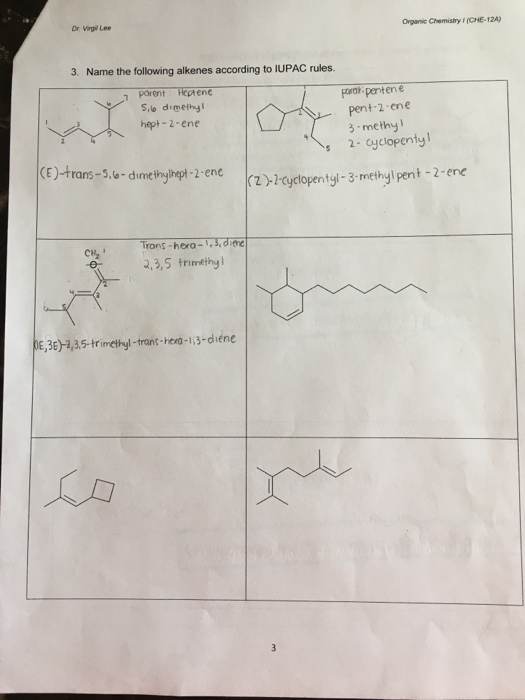 Dr. Virgil Lee
Organic Chemistry I (CHE-12A)
3. Name the following alkenes according to IUPAC rules.
parent Heptene
5,6 dimethyl
hept-2-ene
1
2
4
5
6
7
(E)-trans-5,6-dimethylhept-2-ene
pentene
pent-2-ene
3-methyl
2-cyclopentyl
1
2
3
4
5
(Z)-2-cyclopentyl-3-methylpent-2-ene
Trans-hexa-1,3,diene
2,3,5 trimethyl
CH2
1
2
3
4
6
3E)-2,3,5-trimethyl-trans-hexa-1,3-diene
3